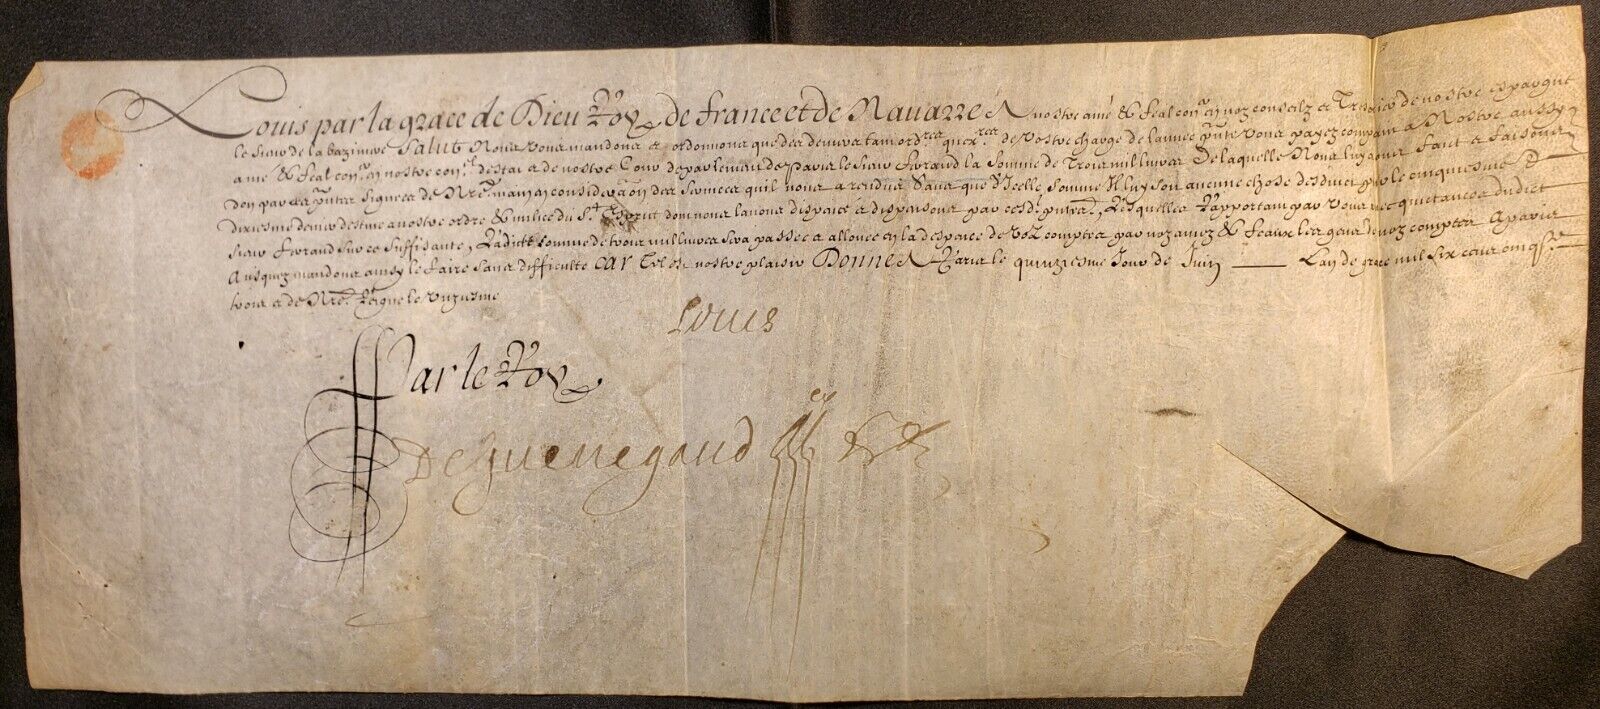 Louis par la grace de Dieu Roy de france et de Navarre A nostre amé & feal con.er en noz conseilz et Tresorier de nostre espargne
le sieur de la baziniere Salut Nous vous mandons et ordonnons que des deniers tant ord.res que ex.res de vostre charge de lannee p̃nte vous payez comptant a Nostre aussy
amé & feal con.er en nostre con.el destat et de nostre Cour de parlement de Paris le sieur Feraud la somme de Trois mil livres De laquelle Nous luy avons faict et faisons
don par ces p̃ntes signees de Nre main en consideraon des services quil nous a rendus Sans que dIcelle somme Il luy soit aucune chose desduict pour le cinquiesme Et
dixiesme denier destiné a nostre ordre & milice du S.t Esprit dont nous lavons dispancé et dispansons par cesd. p̃ntes, Lesquelles Rapportant par vous avec quictance dudict
sieur Feraud sur ce suffisante, Ladicte somme de trois mil livres sera passee et allouee en la despence de voz comptes par noz amez & feaux les gens de noz comptes A paris
Ausquez mandons ainsy le faire sans difficulte Car Tel est nostre plaisir Donne A Paris le quinziesme Jour de Juin Lan de grace mil six cens cinq.te
trois et de Nre Regne le unziesme
Louis
Par le Roy
De Guenegaud